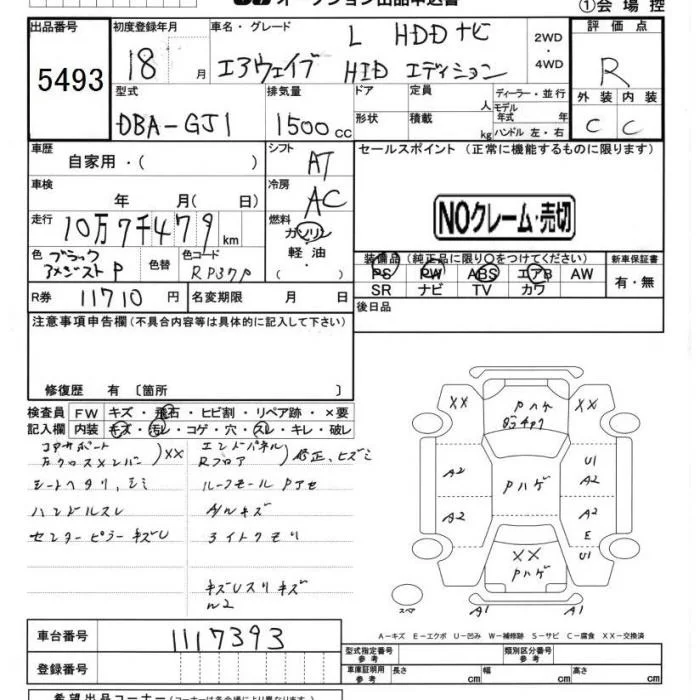 オークション出品申込書
①会場控
出品番号
5493
初度登録年月
18 月
車名・グレード
L HDDナビ
エアウェイブ HID エディション
2WD
4WD
評価点
R
外装 内装
C C
型式
DBA-GJ1
排気量
1500 cc
ドア
形状
定員 人
積載 kg
ディーラー・並行
モデル年式 年
ハンドル 左・右
車歴
自家用・( )
シフト
AT
セールスポイント (正常に機能するものに限ります)
NOクレーム・売切
車検
年 月( 日)
冷房
AC
走行
10万7千479 km
燃料
ガソリン
軽油
( )
色
ブラック
アメジストP
色替
色コード
RP37P
装備品 (純正品に限り○をつけてください)
PS PW ABS エアB AW
SR ナビ TV カワ
新車保証書
有・無
R券 11710 円
名変期限 月 日
後日品
注意事項申告欄(不具合内容等は具体的に記入して下さい)
修復歴 有 〔箇所 〕
検査員 FW キズ・飛石・ヒビ割・リペア跡・×要
記入欄 内装 キズ・汚レ・コゲ・穴・スレ・キレ・破レ
コアサポート
右クロスメンバー )XX
エンドパネル
Rフロア )修正、ヒズミ
シートヘタリ、シミ
ルーフモール
ハンドルスレ
A/Wキズ
センターピラーキズU
ライトクモリ
XX XX
Pハゲ
A2 Pハゲ U1
A2
A2 A2
E
XX U1
Pハゲ
スペア A1 A1
A-キズ E-エクボ U-凹み W-補修跡 S-サビ C-腐食 XX-交換済
車台番号
1117393
型式指定番号
参考
類別区分番号
参考
登録番号
車庫証明用
参考
長さ cm 幅 cm 高さ cm
希望出品コーナー